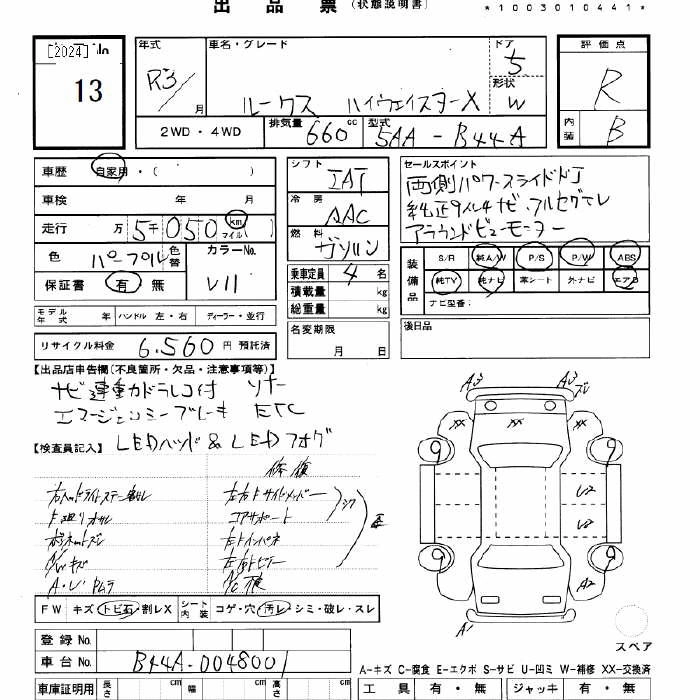 出品票 (状態説明書)
*1003010441*
[2024]
13
年式 R3/ 月
車名・グレード ルークス ハイウェイスターX
ドア 5
形状 W
評価点 R
内装 B
2WD・4WD 排気量 660 cc 型式 5AA-B44A
車歴 自家用・( )
車検 年 月
走行 万 5千 050 km マイル
色 パープル 色替 カラーNo. V11
保証書 有・無
シフト IAT
冷房 AAC
燃料 ガソリン
乗車定員 4 名
積載量 kg
総重量 kg
セールスポイント
両側パワースライドドア
純正9インチナビ、フルセグTV
アラウンドビューモニター
装備品 S/R 純A/W P/S P/W ABS
純TV 純ナビ 革シート 外ナビ エアB
ナビ型番:
モデル年式 年 ハンドル 左・右 ディーラー・並行
名変期限 月 日
後日品
リサイクル料金 6,560 円 預託済
【出品店申告欄(不良箇所・欠品・注意事項等)】
ナビ連動カドラレコ付 ソナー
エマージェンシーブレーキ ETC
LEDヘッド&LEDフォグ
【検査員記入】
修復
コアサポート
左右インパネ
A/Wキズ
A・U
FW キズ・トビ石・割レX シート内装 コゲ・穴・汚レ・シミ・破レ・スレ
A3 A3 ズレ
XX XX XX
9 9
U2
U2
9 9
A2
A1
スペア
登録No.
車台No. B44A-0048001
A-キズ C-腐食 E-エクボ S-サビ U-凹ミ W-補修 XX-交換済
車庫証明用 長さ cm 幅 cm 高さ cm
工具 有・無 ジャッキ 有・無